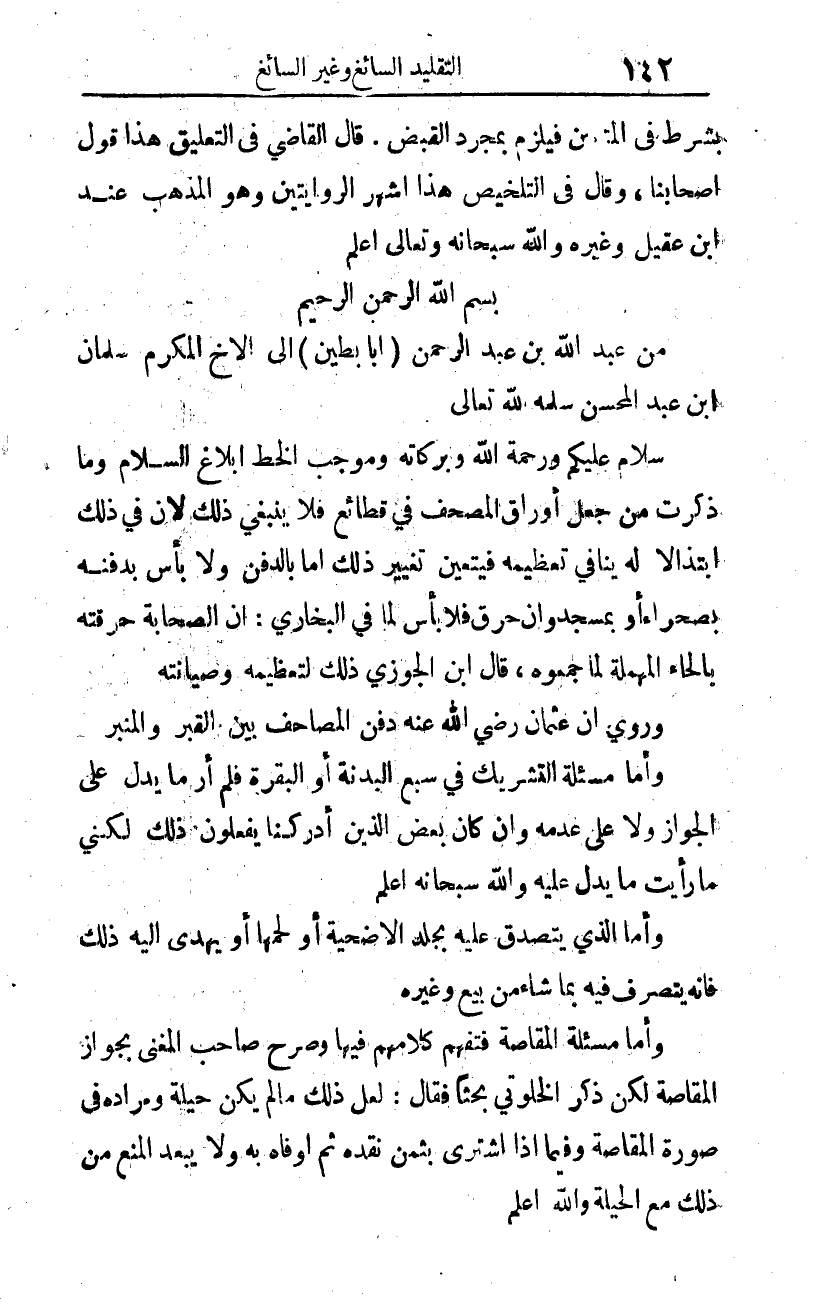 ١٤٢ التقليد السائغ وغير السائغ
بشرط فى المتعين فيلزم بمجرد القبض . قال القاضي فى التعليق هذا قول
اصحابنا ، وقال فى التلخيص هذا اشهر الروايتين وهو المذهب عنـد
ابن عقيل وغيره والله سبحانه وتعالى اعلم
بسم الله الرحمن الرحيم
من عبد الله بن عبد الرحمن ( ابا بطين ) الى الاخ المكرم سلمان
ابن عبد المحسن سلمه الله تعالى
سلام عليكم ورحمة الله وبركاته وموجب الخط ابلاغ السـلام وما
ذكرت من جعل أوراق المصحف في قطائع فلا ينبغي ذلك لان في ذلك
ابتذالا له ينافي تعظيمه فيتعين تغيير ذلك اما بالدفن ولا بأس بدفنـه
بصحراء أو بمسجد وان حرق فلا بأس لما في البخاري : ان الصحابة حرقته
بالحاء المهملة لما جمعوه ، قال ابن الجوزي ذلك لتعظيمه وصيانته
وروي ان عثمان رضي الله عنه دفن المصاحف بين القبر والمنبر
وأما مسئلة التشريك في سبع البدنة أو البقرة فلم أر ما يدل على
الجواز ولا على عدمه وان كان بعض الذين أدركنا يفعلون ذلك لكنني
ما رأيت ما يدل عليه والله سبحانه اعلم
وأما الذي يتصدق عليه بجلد الاضحية أو لحمها أو يهدى اليه ذلك
فانه يتصرف فيه بما شاء من بيع وغيره
وأما مسئلة المقاصة فتفهم كلامهم فيها وصرح صاحب المغنى بجواز
المقاصة لكن ذكر الخلوتي بحثاً فقال : لعل ذلك مالم يكن حيلة ومراده فى
صورة المقاصة وفيما اذا اشترى بثمن نقده ثم اوفاه به ولا يبعد المنع من
ذلك مع الحيلة والله اعلم